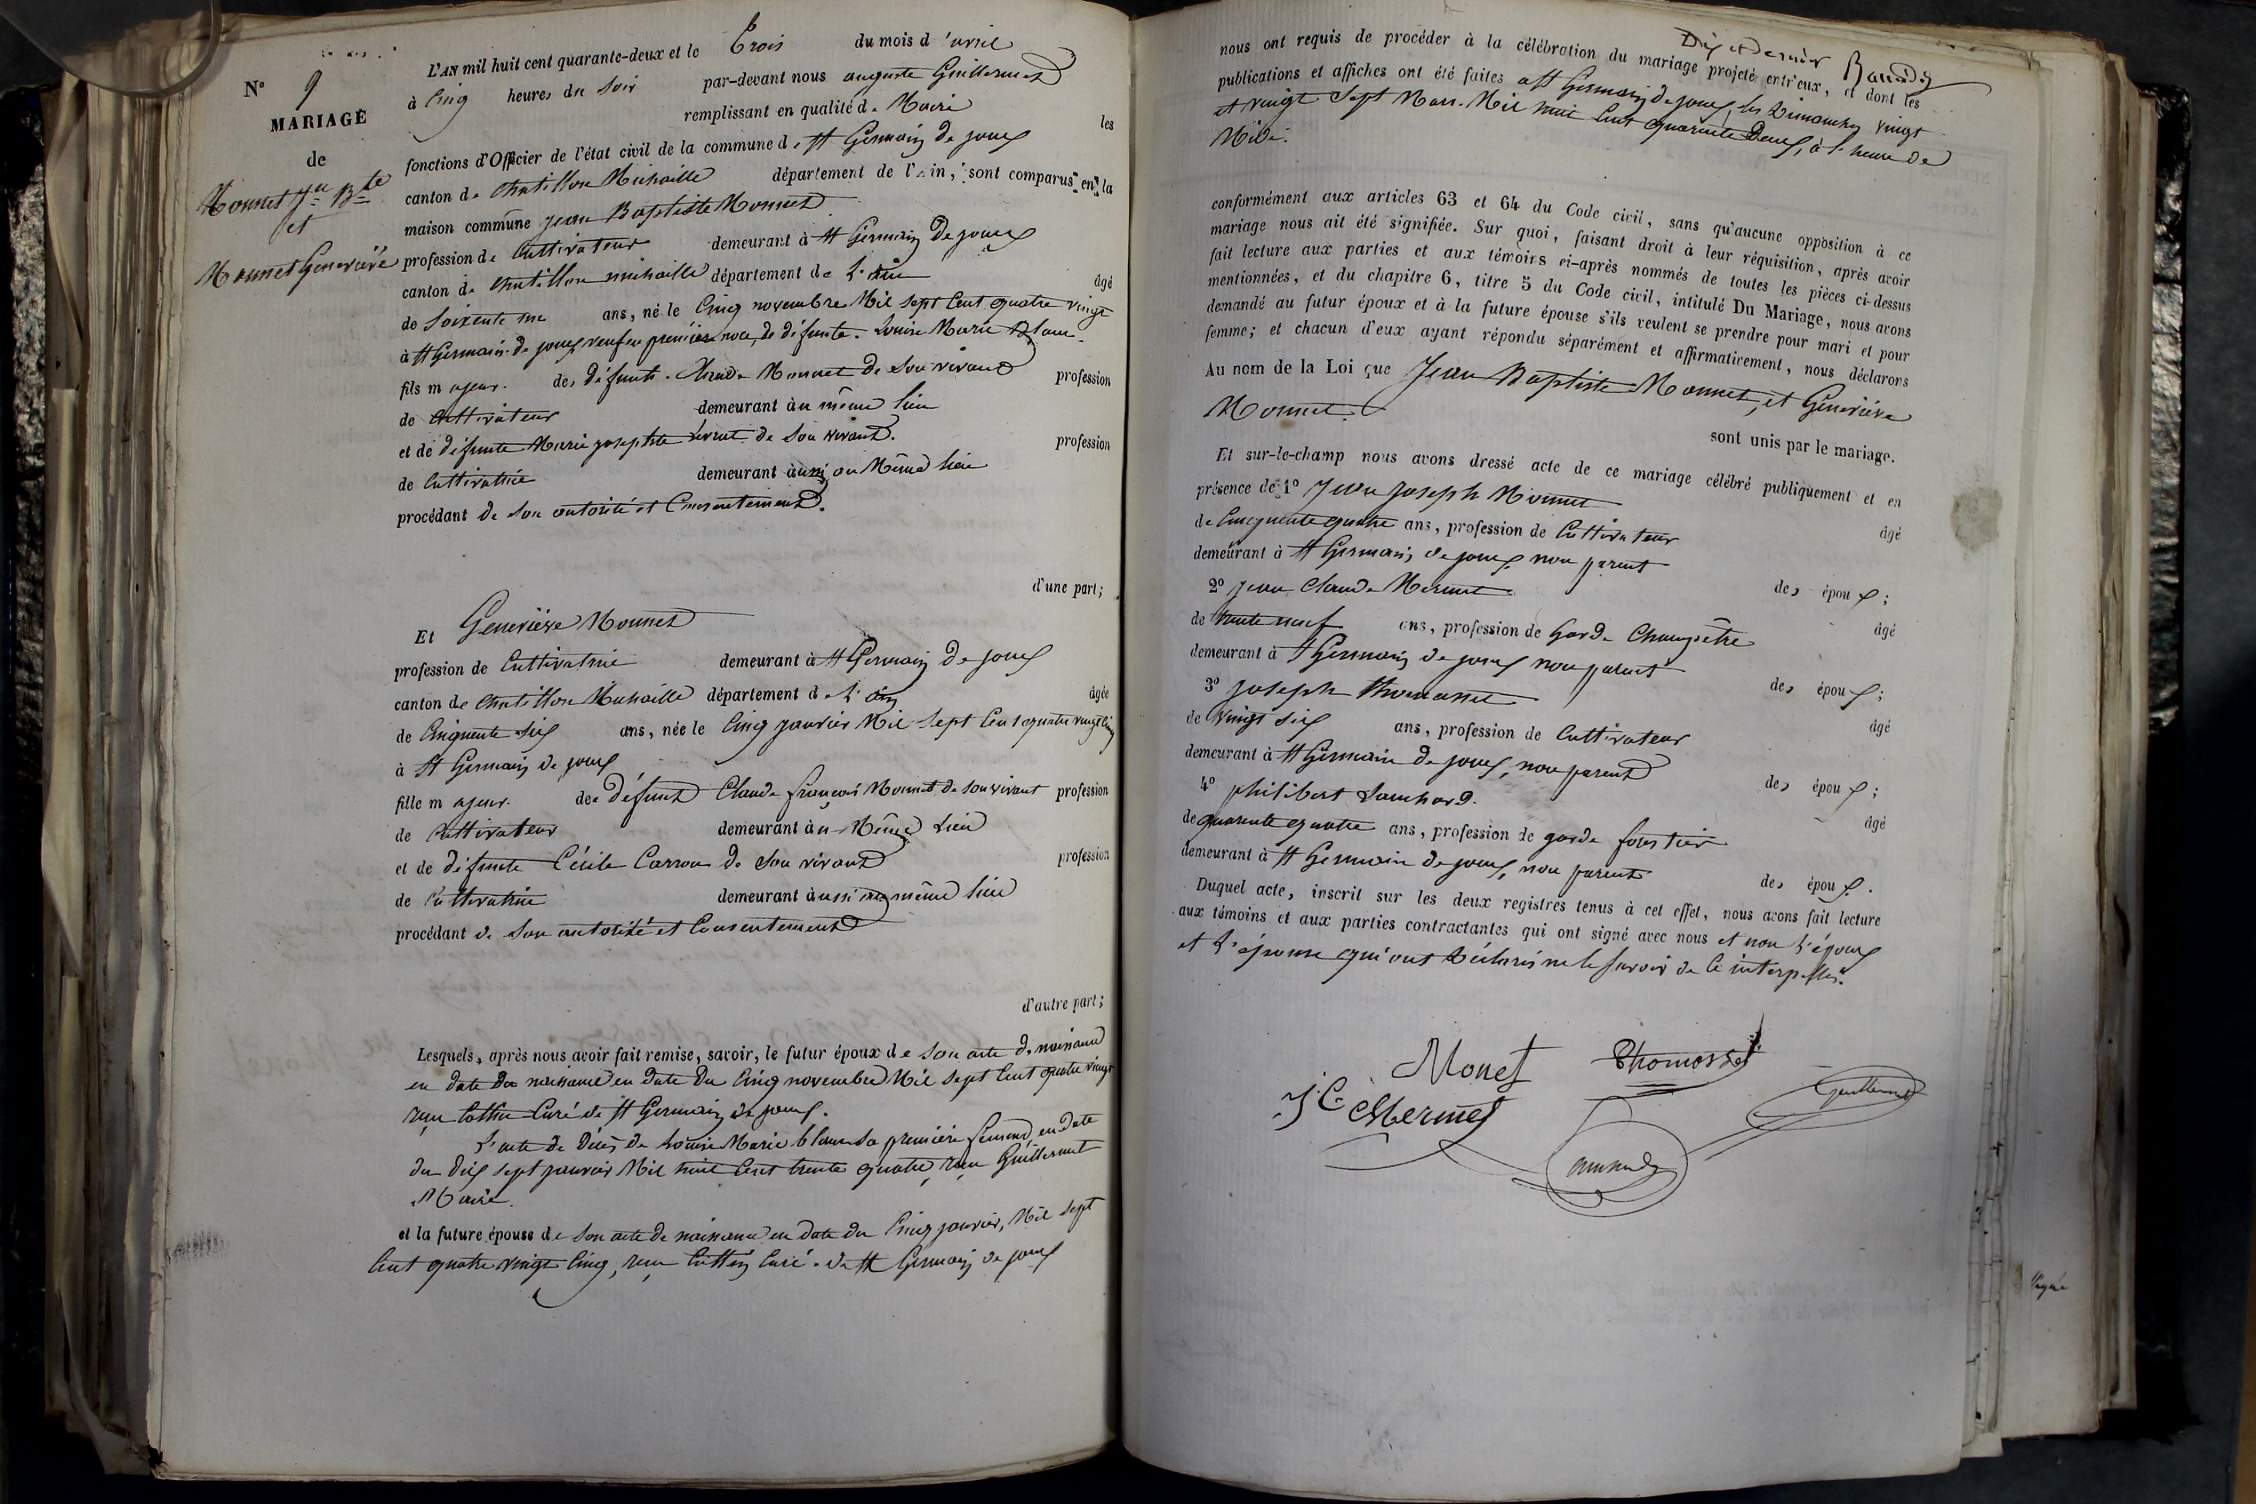 N° 9
MARIAGE
de
Monnet Jn Bte
et
Monnet Geneviève
L'AN mil huit cent quarante-deux et le Trois du mois d'avril
à Cinq heures du Soir par-devant nous auguste Guillermet
remplissant en qualité de Maire les
fonctions d'Officier de l'état civil de la commune de St Germain de joux
canton de Chatillon Michaille département de l'Ain, sont comparus en la
maison commune jean Baptiste Monnet
profession de Cultivateur demeurant à St Germain De joux
canton de Chatillon michaille département de L'ain âgé
de Soixente un ans, né le Cinq novembre Mil Sept Cent quatre vingt
à St Germain de joux, veuf en première noce, de défunte Louise Marie Blanc
fils majeur des défunts Claude Monnet De Son vivant profession
de Cultivateur demeurant au même lieu
et de défunte Marie josephte de Son vivant profession
de Cultivatrice demeurant aussi au Même lieu
procédant de Son autorité et Consentement.
d'une part;
Et Geneviève Monnet
profession de Cultivatrice demeurant à St Germain De joux
canton de Chatillon Michaille département de L'ain âgée
de Cinquente Six ans, née le Cinq janvier Mil Sept Cent quatre vingt Cinq
à St Germain De joux
fille majeur de défunt Claude françois Monnet de Son vivant profession
de Cultivateur demeurant au Même Lieu
et de défunte Cécile Carron de Son vivant profession
de Cultivatrice demeurant aussi au même lieu
procédant de Son autorité et Consentement
d'autre part;
Lesquels, après nous avoir fait remise, savoir, le futur époux de Son acte de naissance
en date de naissance en date du Cinq novembre Mil Sept Cent quatre vingt
reçu Curé de St Germain de joux.
L'acte de Décès de Louise Marie blanc Sa première femme, en date
du Dix Sept janvier Mil huit Cent trente quatre, reçu Guillermet
Maire.
et la future épouse de Son acte de naissance en date du Cinq janvier, Mil Sept
Cent quatre vingt Cinq, reçu Curé de St Germain de joux
Dix et dernier
nous ont requis de procéder à la célébration du mariage projeté entr'eux, et dont les
publications et affiches ont été faites à St Germain de joux, les Dimanches vingt
et vingt Sept Mars Mil huit Cent quarente Deux, à l'heure de
Midi.
conformément aux articles 63 et 64 du Code civil, sans qu'aucune opposition à ce
mariage nous ait été signifiée. Sur quoi, faisant droit à leur réquisition, après avoir
fait lecture aux parties et aux témoins ci-après nommés de toutes les pièces ci-dessus
mentionnées, et du chapitre 6, titre 5 du Code civil, intitulé Du Mariage, nous avons
demandé au futur époux et à la future épouse s'ils veulent se prendre pour mari et pour
femme; et chacun d'eux ayant répondu séparément et affirmativement, nous déclarons
Au nom de la Loi que Jean Baptiste Monnet, et Geneviève
Monnet
sont unis par le mariage.
Et sur-le-champ nous avons dressé acte de ce mariage célébré publiquement et en
présence de 1° Jean Joseph Monnet âgé
de Cinquente quatre ans, profession de Cultivateur
demeurant à St Germain de joux, non parent des époux;
2° jean Claude Mermet âgé
de trente neuf ans, profession de Garde Champêtre
demeurant à St Germain de joux non parent des époux;
3° Joseph Thomasset âgé
de vingt Six ans, profession de Cultivateur
demeurant à St Germain de joux, non parent des époux;
4° philibert âgé
de quarente quatre ans, profession de garde forestier
demeurant à St Germain de joux, non parent des époux.
Duquel acte, inscrit sur les deux registres tenus à cet effet, nous avons fait lecture
aux témoins et aux parties contractantes qui ont signé avec nous et non L'époux
et L'épouse qui ont Déclarés ne le Savoir de Ce interpellés.
Monet Thomasset
J. C. Mermet Guillermet